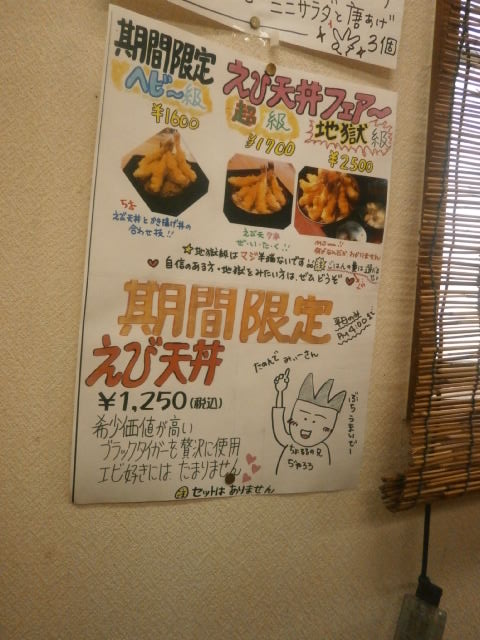 ミニサラダと唐あげ
3個
期間限定
えび天丼フェアー
ヘビー級
超級
地獄級
¥1600
¥1900
¥2500
えび天丼とかき揚げ丼の
合わせ技!!
ぜ・い・た・く!!
☆地獄級はマジ半端ないです
自信のある方・地獄をみたい方は、ぜひどうぞ
期間限定
平日のみ
えび天丼
¥1,250(税込)
たのんでみぃーさん
希少価値が高い
ブラックタイガーを贅沢に使用
エビ好きにはたまりません
セットはありません
ぶちうまいでー